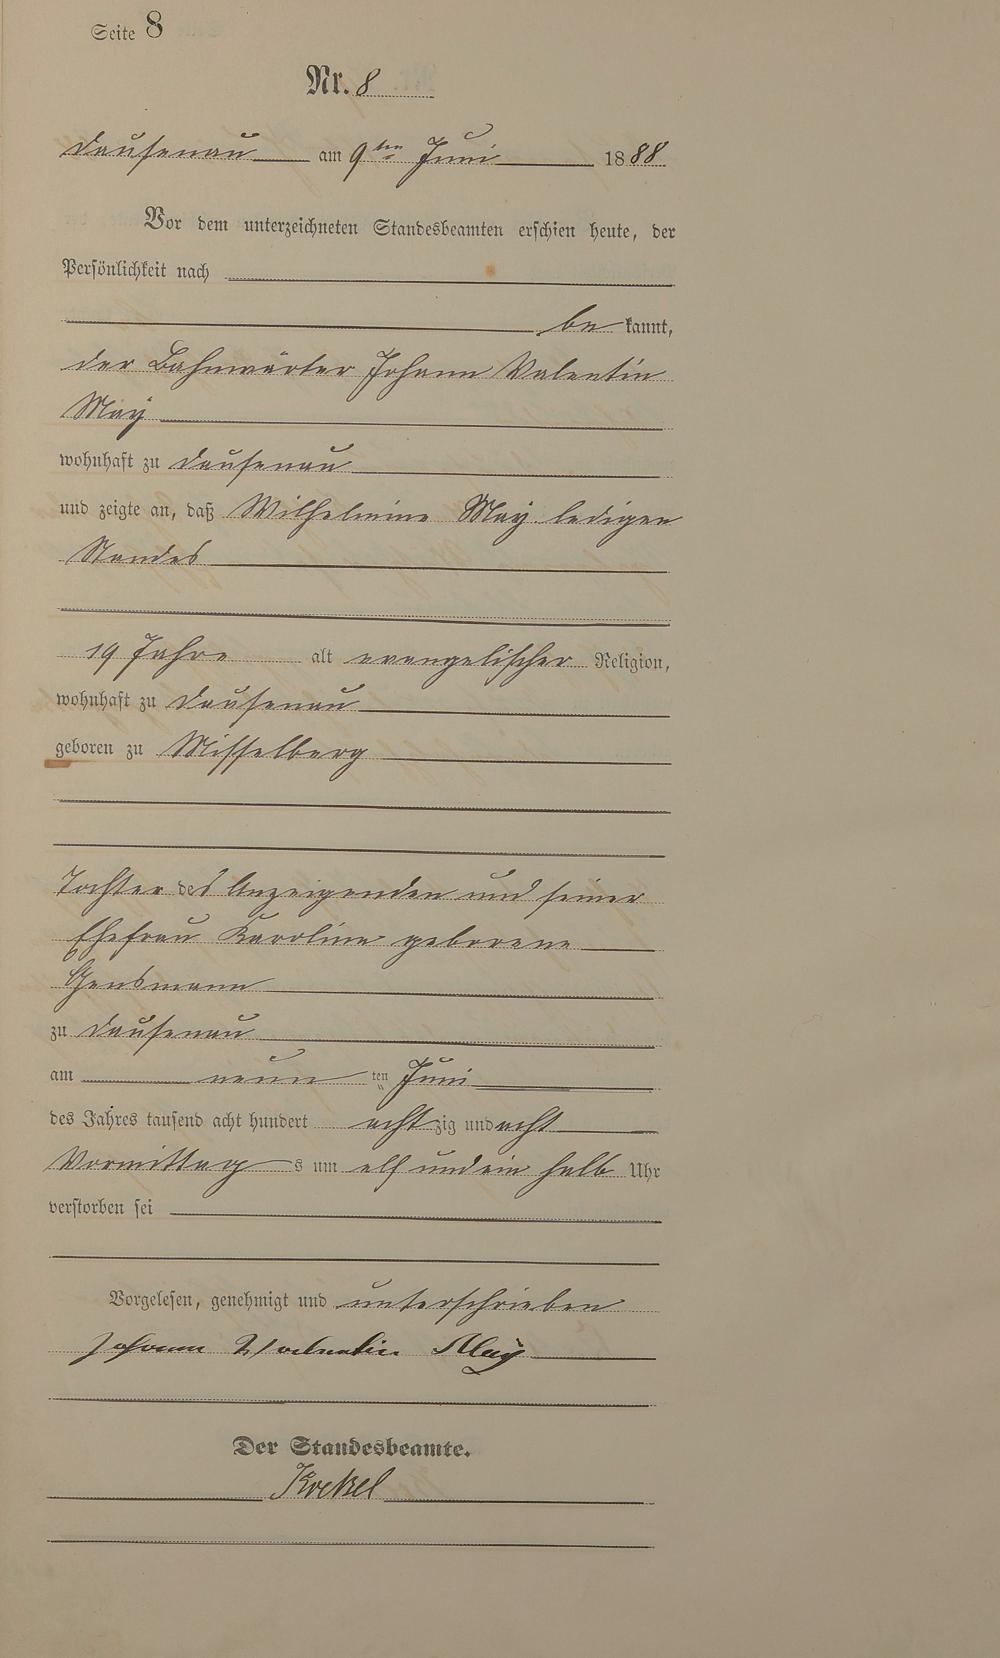 Seite 8
Nr. 8
Dausenau am 9ten Juni 1888
Vor dem unterzeichneten Standesbeamten erschien heute, der
Persönlichkeit nach
be kannt,
der Bahnwärter Johann Valentin
May
wohnhaft zu Dausenau
und zeigte an, daß Wilhelmine May ledigen
Standes
19 Jahre alt evangelischer Religion,
wohnhaft zu Dausenau
geboren zu Misselberg
Tochter des Anzeigenden und seiner
Ehefrau Karoline geborene
Gensmann
zu Dausenau
am neun ten Juni
des Jahres tausend acht hundert acht zig und acht
Vormittag s um elf und ein halb Uhr
verstorben sei
Vorgelesen, genehmigt und unterschrieben
Johann Valentin May
Der Standesbeamte.